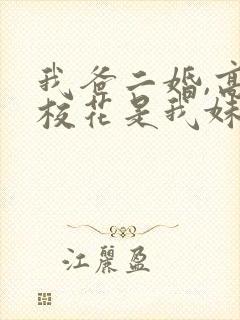 我爸二婚,高
校花是我妹
江丽盈